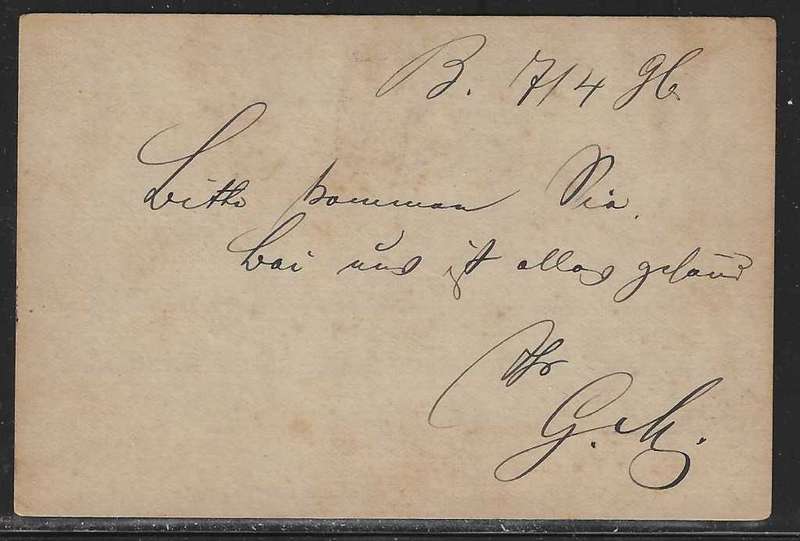 B. 7/4 96
Bitte kommen Sie.
Bei uns ist alles gesund
Ihr
G. M.